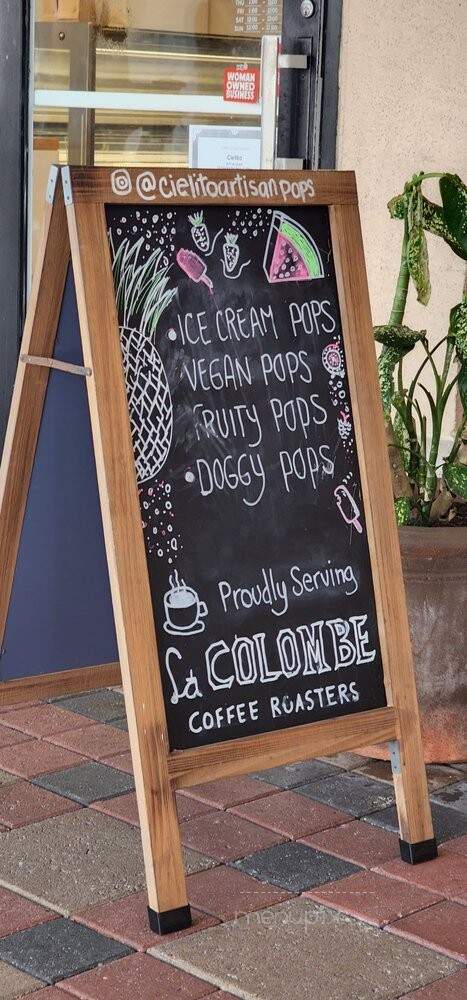 WOMAN
OWNED
BUSINESS
Cielito
@cielitoartisanpops
ICE CREAM POPS
VEGAN POPS
FRUITY POPS
DOGGY POPS
Proudly Serving
La COLOMBE
COFFEE ROASTERS